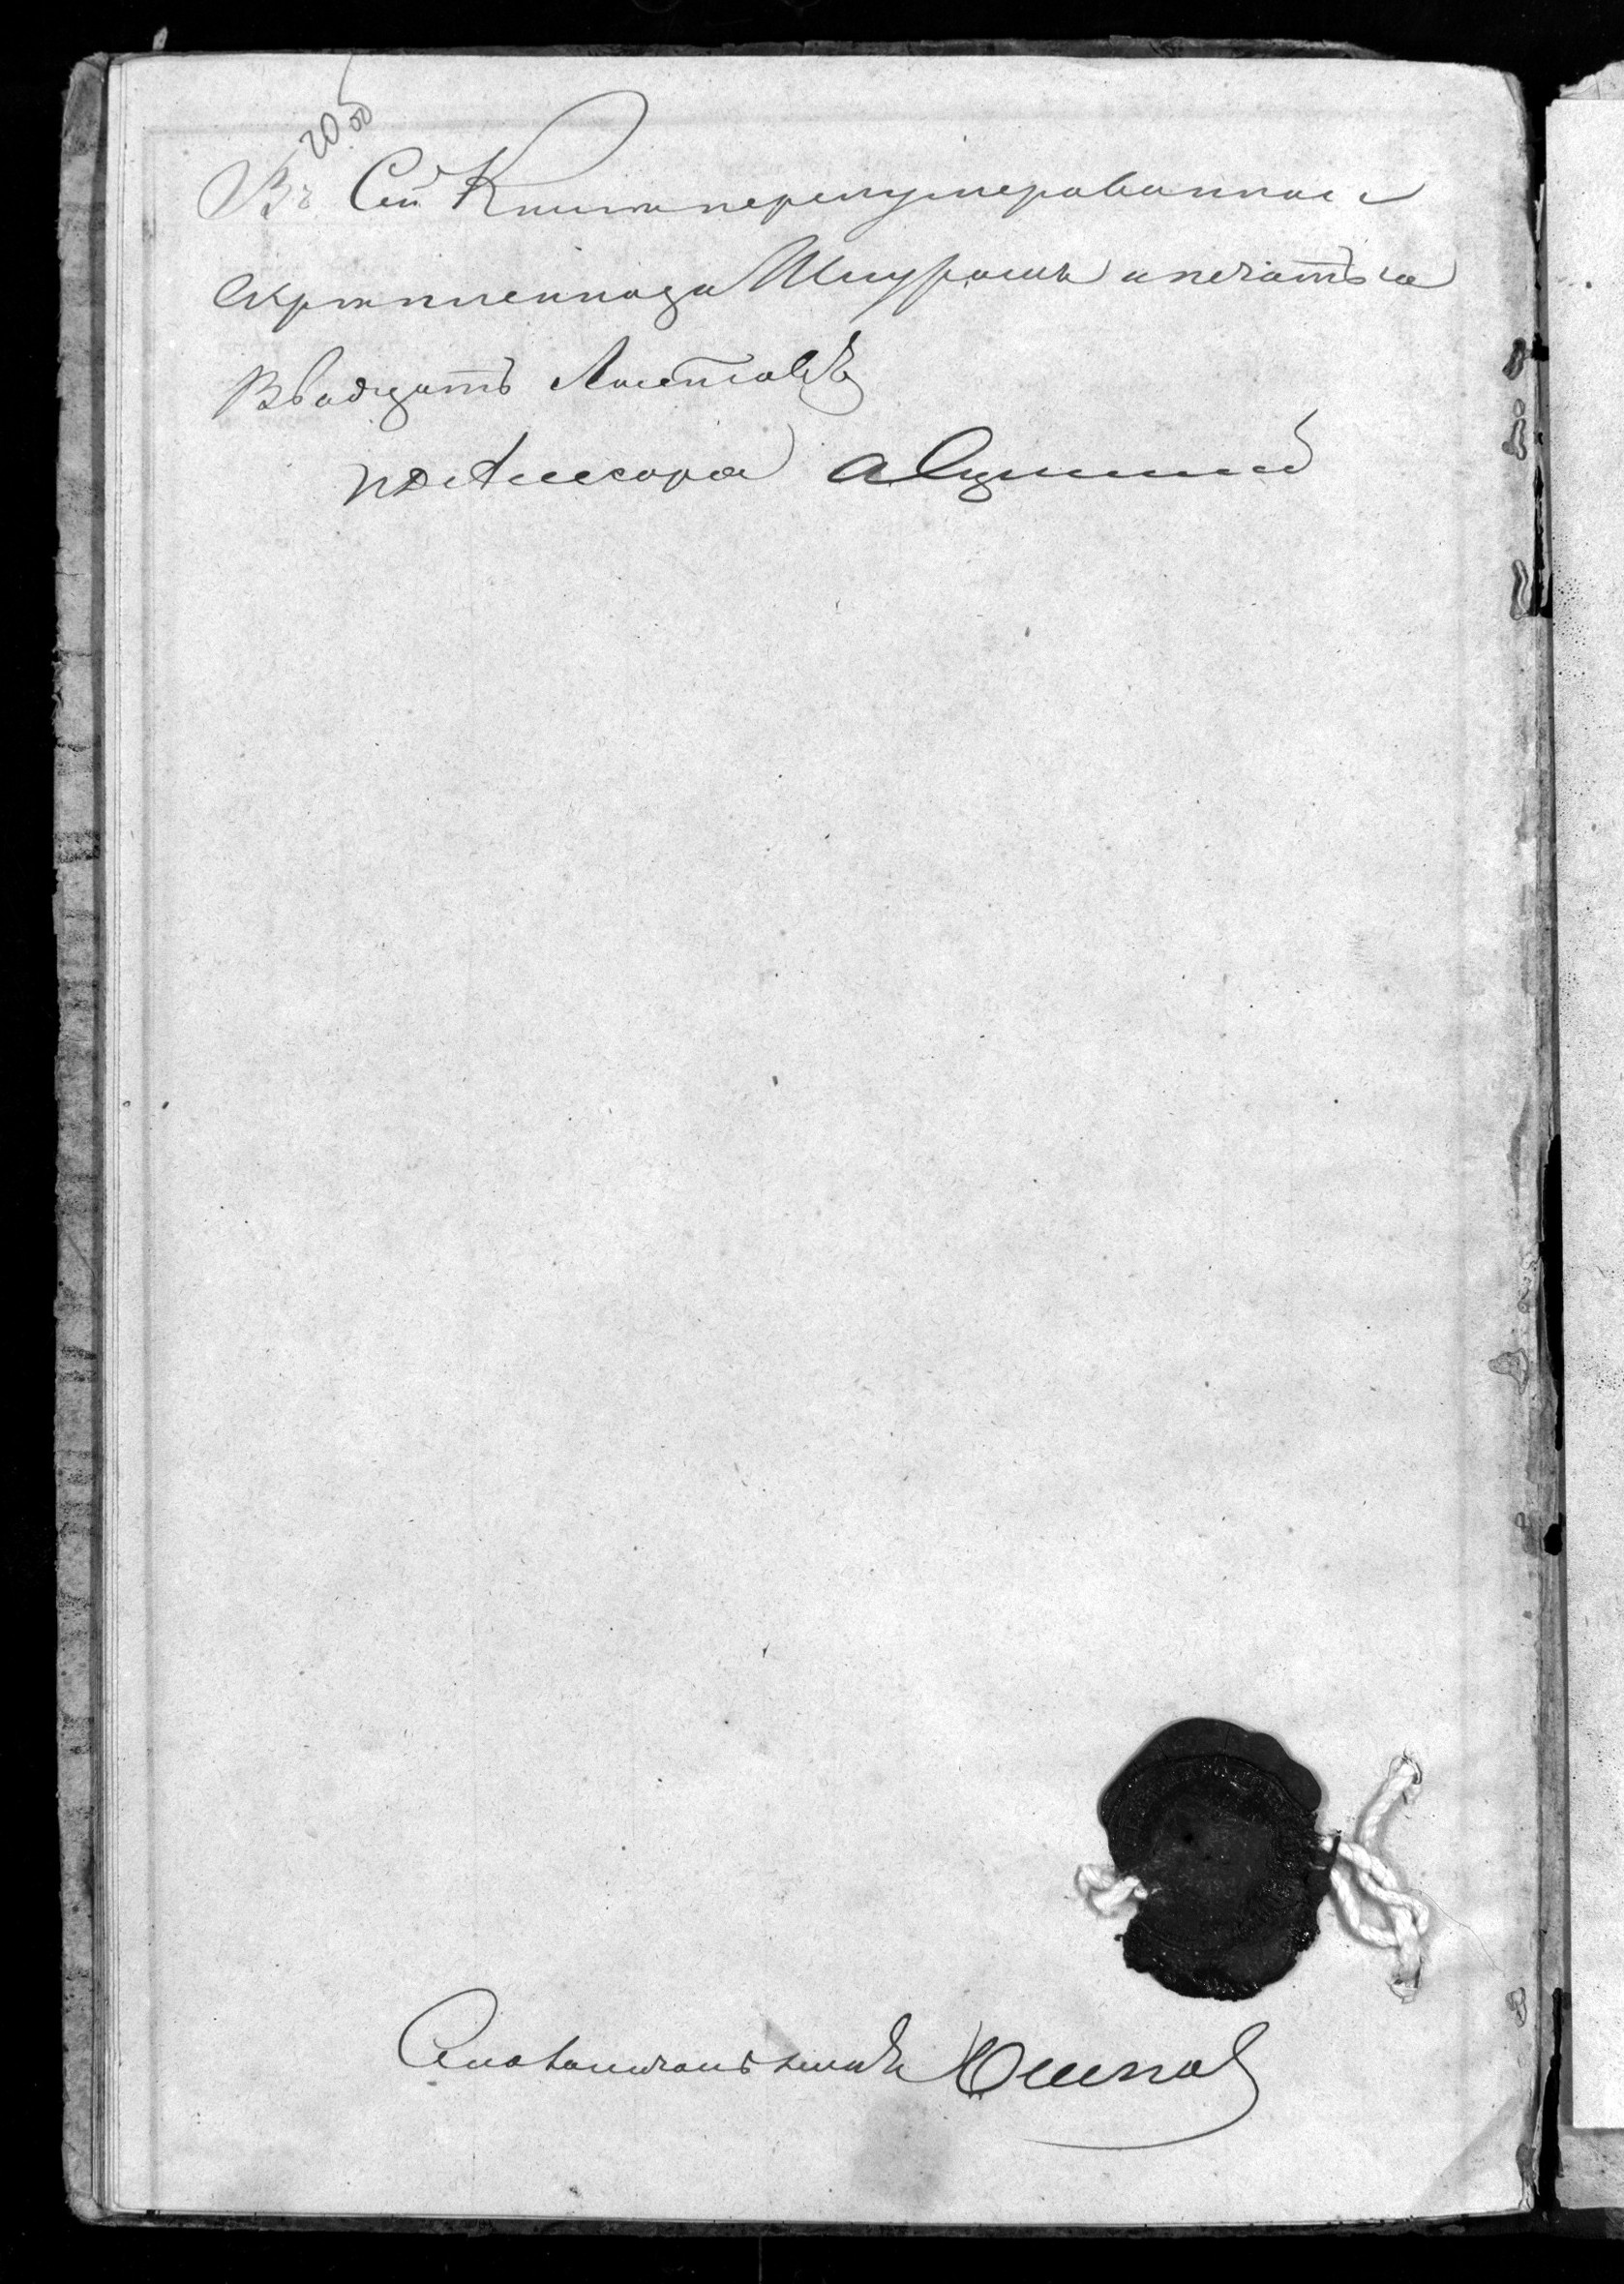 20
Въ Сей Книги перенумерованной и
скрепленной за Шнуромъ и печатью
Двадцать Листовъ
ИД Асесора
Столоначальникъ